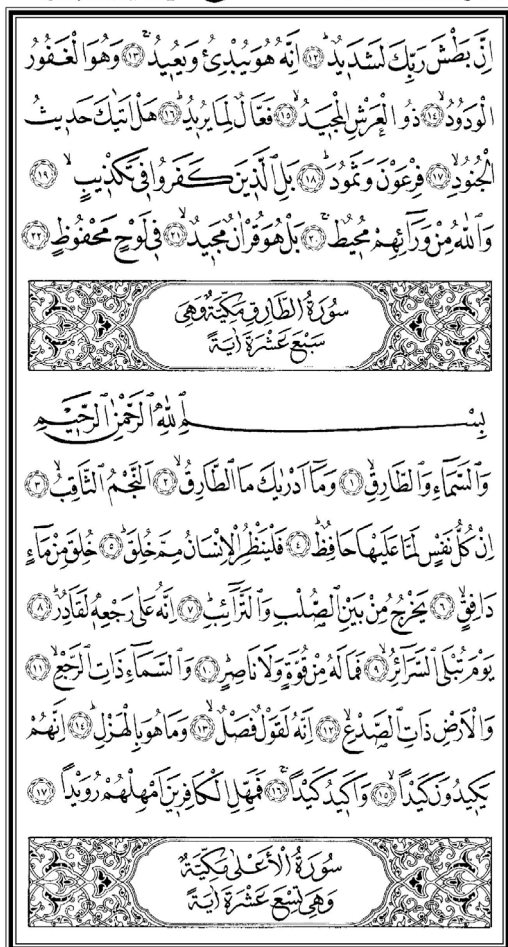 اِنَّ بَطْشَ رَبِّكَ لَشَدٖيدٌۜ ﴿١٢﴾ اِنَّهُ هُوَ يُبْدِئُ وَيُعٖيدُۚ ﴿١٣﴾ وَهُوَ الْغَفُورُ
الْوَدُودُۙ ﴿١٤﴾ ذُو الْعَرْشِ الْمَجٖيدُۙ ﴿١٥﴾ فَعَّالٌ لِمَا يُرٖيدُۜ ﴿١٦﴾ هَلْ اَتٰيكَ حَدٖيثُ
الْجُنُودِۙ ﴿١٧﴾ فِرْعَوْنَ وَثَمُودَۜ ﴿١٨﴾ بَلِ الَّذٖينَ كَفَرُوا فٖي تَكْذٖيبٍۙ ﴿١٩﴾
وَاللّٰهُ مِنْ وَرَٓائِهِمْ مُحٖيطٌۚ ﴿٢٠﴾ بَلْ هُوَ قُرْاٰنٌ مَجٖيدٌۙ ﴿٢١﴾ فٖي لَوْحٍ مَحْفُوظٍ ﴿٢٢﴾
سُورَةُ الطَّارِقِ مَكِّيَّةٌ وَهِيَ
سَبْعَ عَشْرَةَ اٰيَةً
بِسْمِ اللّٰهِ الرَّحْمٰنِ الرَّحٖيمِ
وَالسَّمَٓاءِ وَالطَّارِقِۙ ﴿١﴾ وَمَٓا اَدْرٰيكَ مَا الطَّارِقُۙ ﴿٢﴾ اَلنَّجْمُ الثَّاقِبُۙ ﴿٣﴾
اِنْ كُلُّ نَفْسٍ لَمَّا عَلَيْهَا حَافِظٌۜ ﴿٤﴾ فَلْيَنْظُرِ الْاِنْسَانُ مِمَّ خُلِقَۜ ﴿٥﴾ خُلِقَ مِنْ مَٓاءٍ
دَافِقٍۙ ﴿٦﴾ يَخْرُجُ مِنْ بَيْنِ الصُّلْبِ وَالتَّرَٓائِبِۜ ﴿٧﴾ اِنَّهُ عَلٰى رَجْعِهٖ لَقَادِرٌۜ ﴿٨﴾
يَوْمَ تُبْلَى السَّرَٓائِرُۙ ﴿٩﴾ فَمَا لَهُ مِنْ قُوَّةٍ وَلَا نَاصِرٍۜ ﴿١٠﴾ وَالسَّمَٓاءِ ذَاتِ الرَّجْعِۙ ﴿١١﴾
وَالْاَرْضِ ذَاتِ الصَّدْعِۙ ﴿١٢﴾ اِنَّهُ لَقَوْلٌ فَصْلٌۙ ﴿١٣﴾ وَمَا هُوَ بِالْهَزْلِۜ ﴿١٤﴾ اِنَّهُمْ
يَكٖيدُونَ كَيْدًاۙ ﴿١٥﴾ وَاَكٖيدُ كَيْدًاۚ ﴿١٦﴾ فَمَهِّلِ الْكَافِرٖينَ اَمْهِلْهُمْ رُوَيْدًا ﴿١٧﴾
سُورَةُ الْأَعْلٰى مَكِّيَّةٌ
وَهِيَ تِسْعَ عَشْرَةَ اٰيَةً